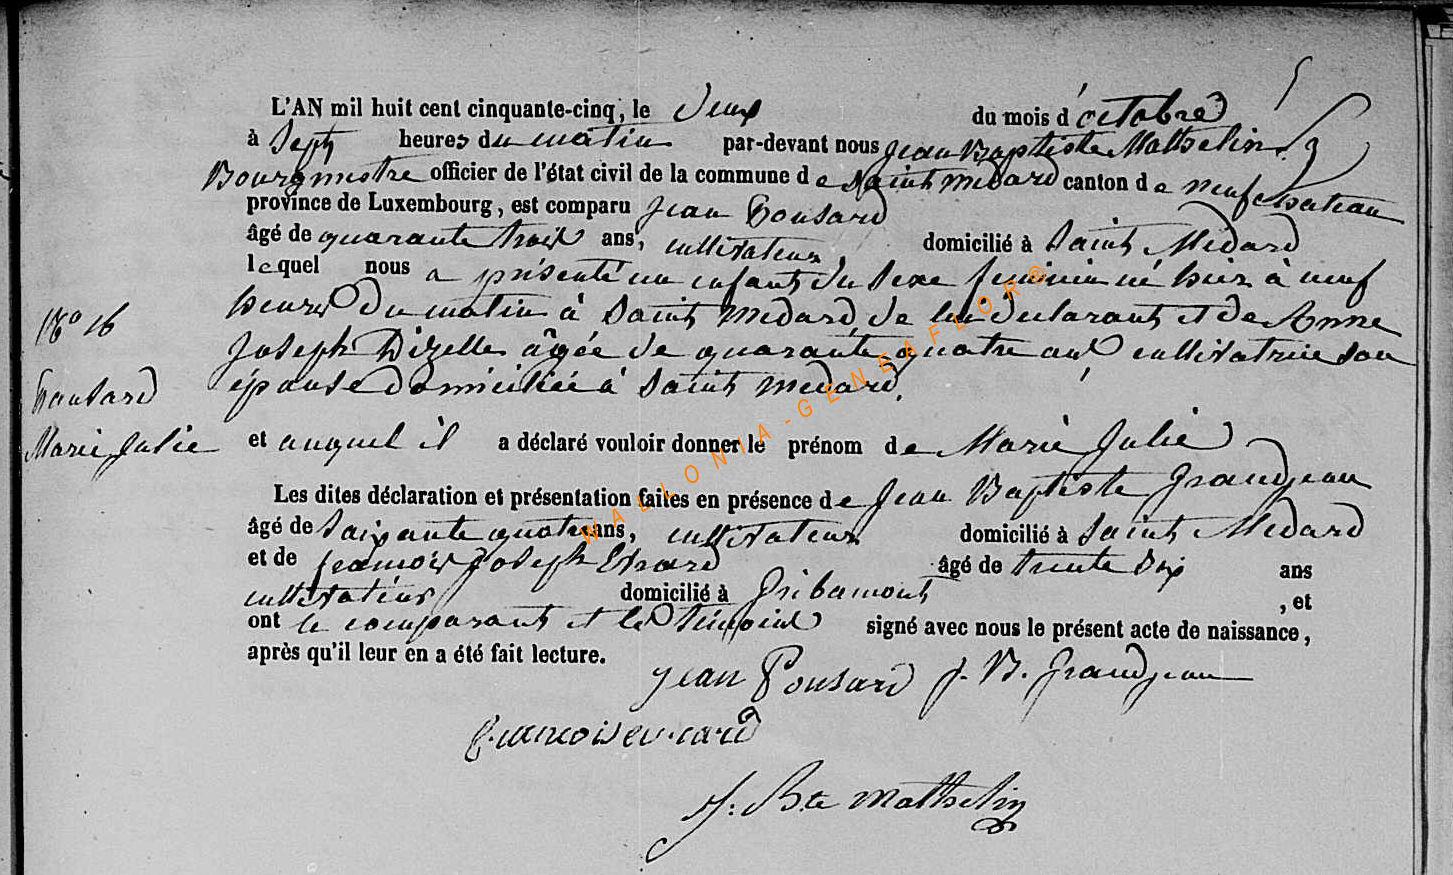 L'AN mil huit cent cinquante-cinq, le deux du mois d'octobre
à Sept heures du matin par-devant nous Jean Baptiste Mathelin
Bourgmestre officier de l'état civil de la commune de Saint Medard canton de neufchateau
province de Luxembourg, est comparu Jean Ponsard
âgé de quarante trois ans, cultivateur, domicilié à Saint Médard
lequel nous a présenté un enfant du sexe feminin né hier à neuf
heures du matin à Saint Medard, de lui déclarant et de Anne
Joseph Dizelle âgée de quarante quatre ans cultivatrice son
épouse domiciliée à Saint Medard,
No 16
Ponsard
Marie Julie
et auquel il a déclaré vouloir donner le prénom de Marie Julie
Les dites déclaration et présentation faites en présence de Jean Baptiste Grandjean
âgé de Soixante quatre ans, cultivateur domicilié à Saint Medard
et de françois Joseph Evrard âgé de trente six ans
cultivateur domicilié à Gribamont, et
ont le comparant et les témoins signé avec nous le présent acte de naissance,
après qu'il leur en a été fait lecture.
Jean Ponsard J. B. Grandjean
François evrard
J. Bte Mathelin
WALLONIA-GENEAFLOR©